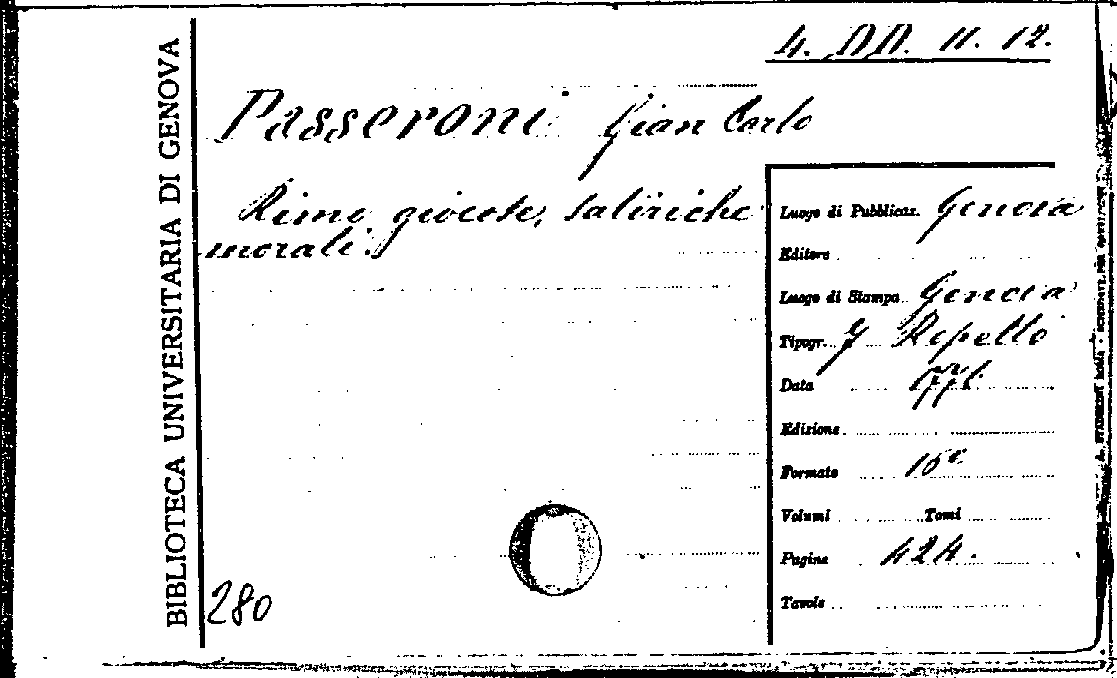 BIBLIOTECA UNIVERSITARIA DI GENOVA
4. DD. 11. 12.
Passeroni Gian Carlo
Rime giocose, satiriche
morali.
Luogo di Pubblicaz. Genova
Editore
Luogo di Stampa Genova
Tipogr. Repetto
Data
Edizione
Formato 16°
Volumi Tomi
Pagine 424.
Tavole
280